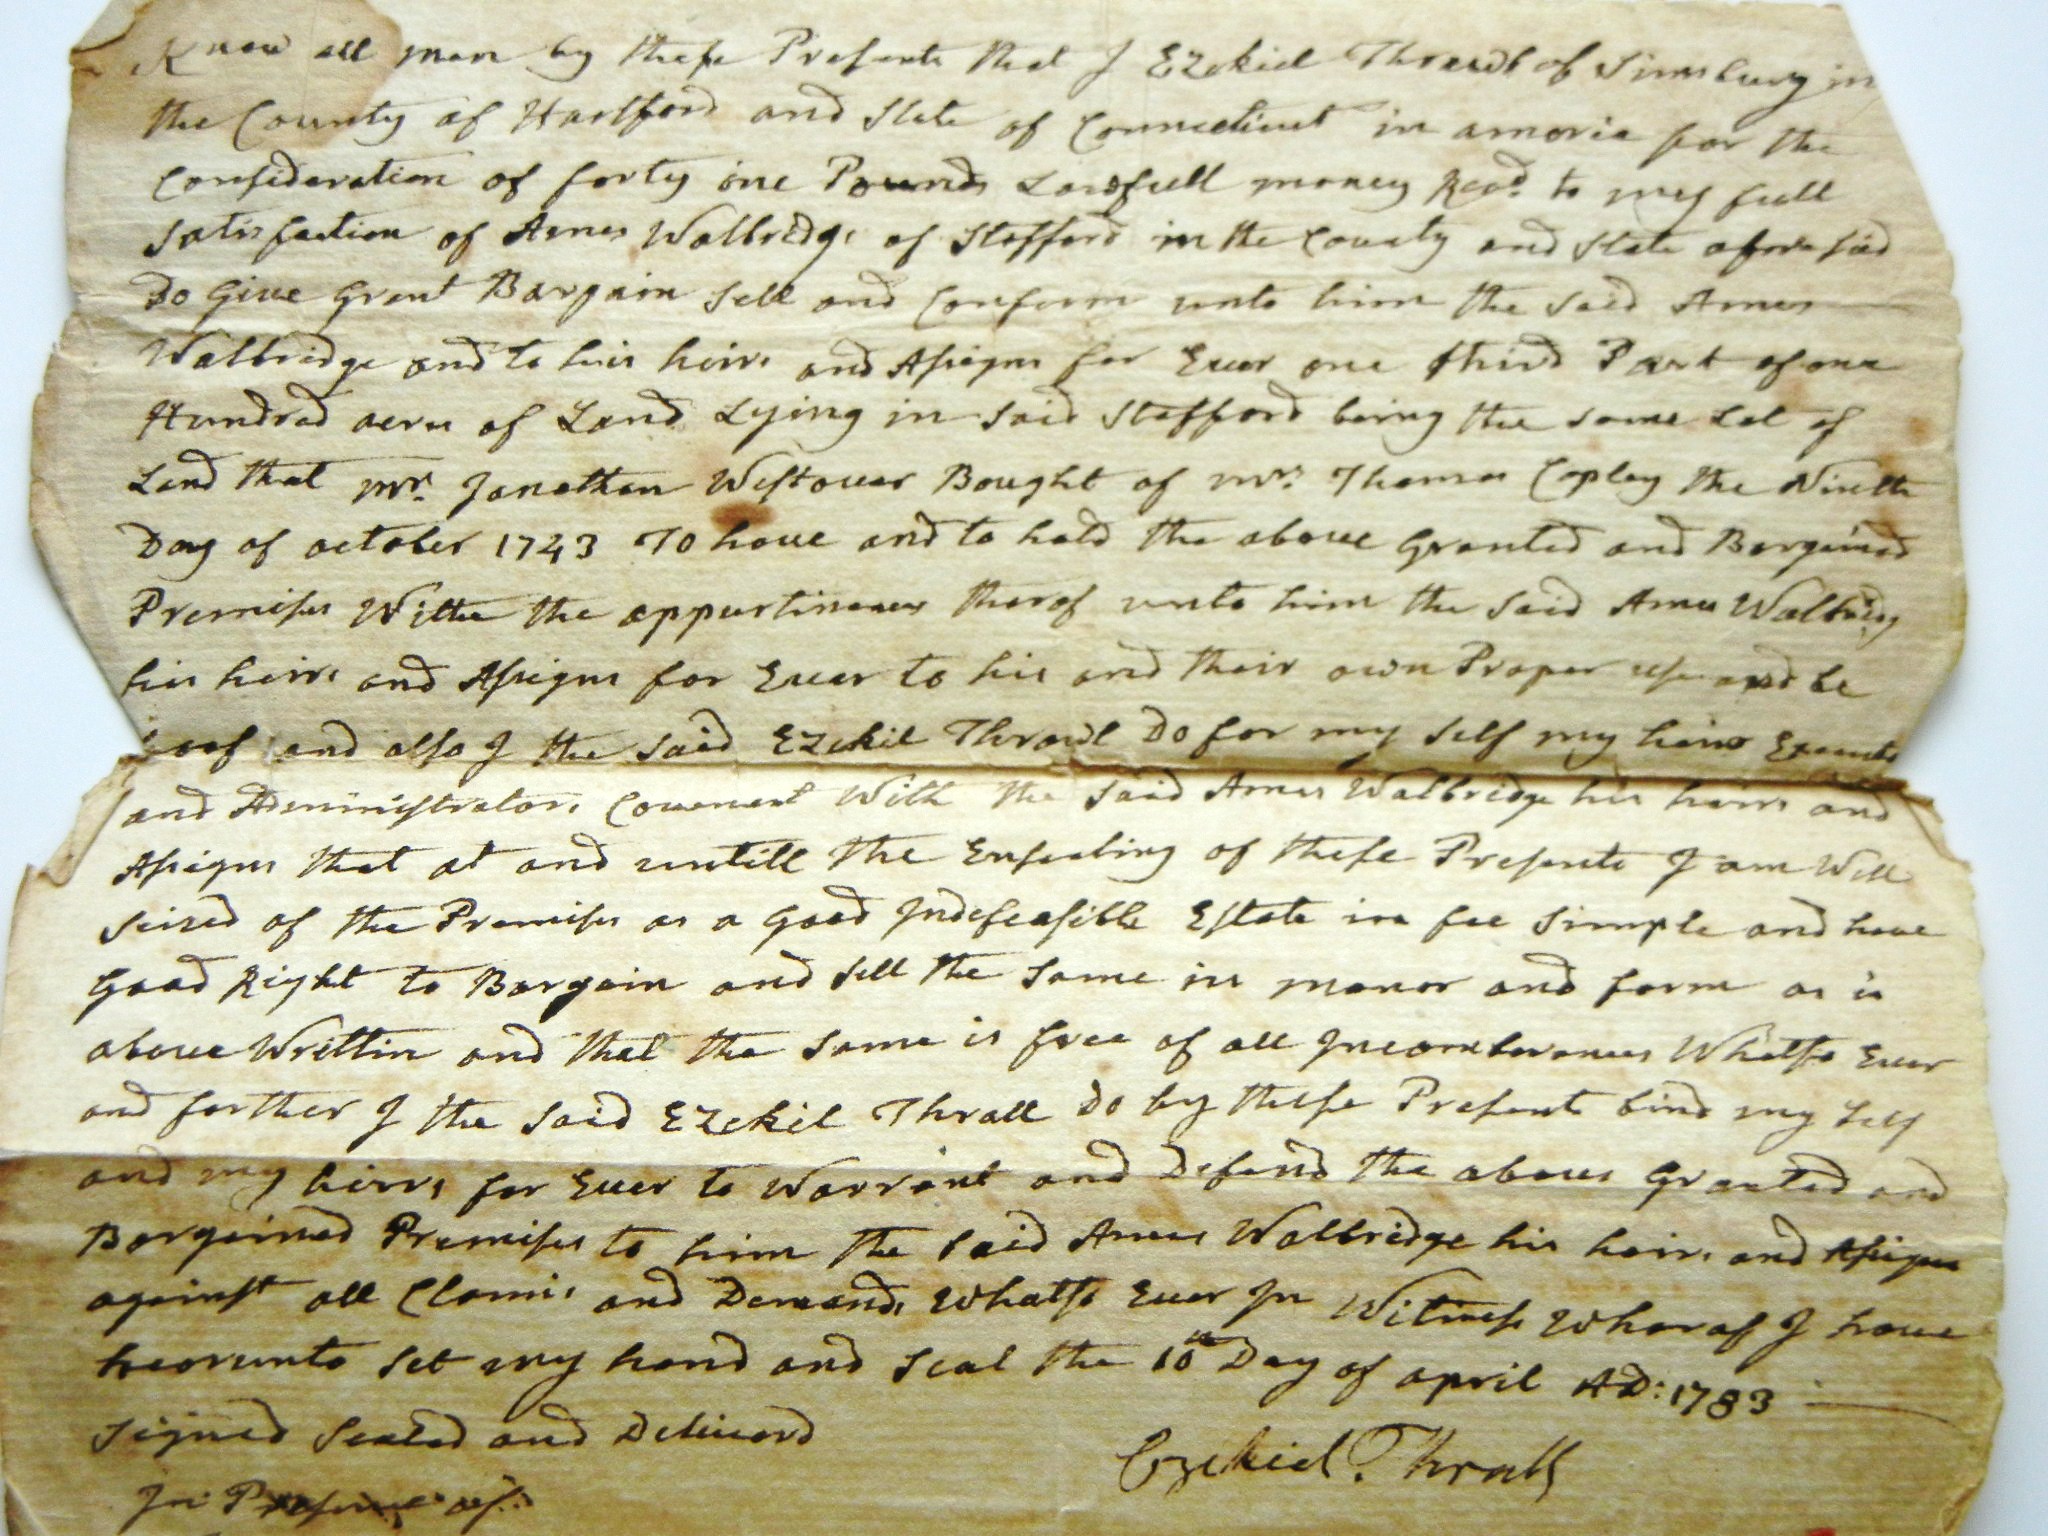 Know all men by these Presents that I Ezekiel Thrall of Simsbury in
the County of Hartford and State of Connecticut in amorica for the
Consideration of forty one Pounds Lawfull money Recd. to my full
Satisfaction of Ames Walbridge of Stafford in the County and State afore said
Do Give Grant Bargain Sell and Conform unto him the Said Ames
Walbridge and to his heirs and Assigns for Ever one third Part of one
Hundrad acers of Land Lying in Said Stafford being the Same Lot of
Land that Mr. Jonathan Westover Bought of Mr. Thomas Copley the Nineth
Day of october 1743 To have and to hold the above Granted and Bargained
Premises With the appurtinances therof unto him the Said Ames Walbridg
his heirs and Assigns for Ever to his and their own Proper use and be
hoof and also I the Said Ezekil Thrall Do for my Self my heirs Executs
and Administrators Covenant With the Said Ames Walbridge his heirs and
Assigns that at and untill the Ensealing of these Presents I am Well
Seized of the Premises as a Good Indefeasible Estate in fee Simple and have
Good Right to Bargain and Sell the Same in manor and form as is
above Writtin and that the Same is free of all Incomberances Whatso Ever
and forther I the Said Ezekil Thrall Do by these Presents bind my Self
and my heirs for Ever to Warrant and Defend the above Granted and
Bargained Premises to him the Said Ames Walbridge his heirs and Assigns
against all Clamis and Demands Whatso Ever In Witness Wharof I have
hearunto Set my hand and Seal the 10th Day of april AD: 1783
Signed Sealed and Deliverd
In Presence of
Ezekiel Thrall